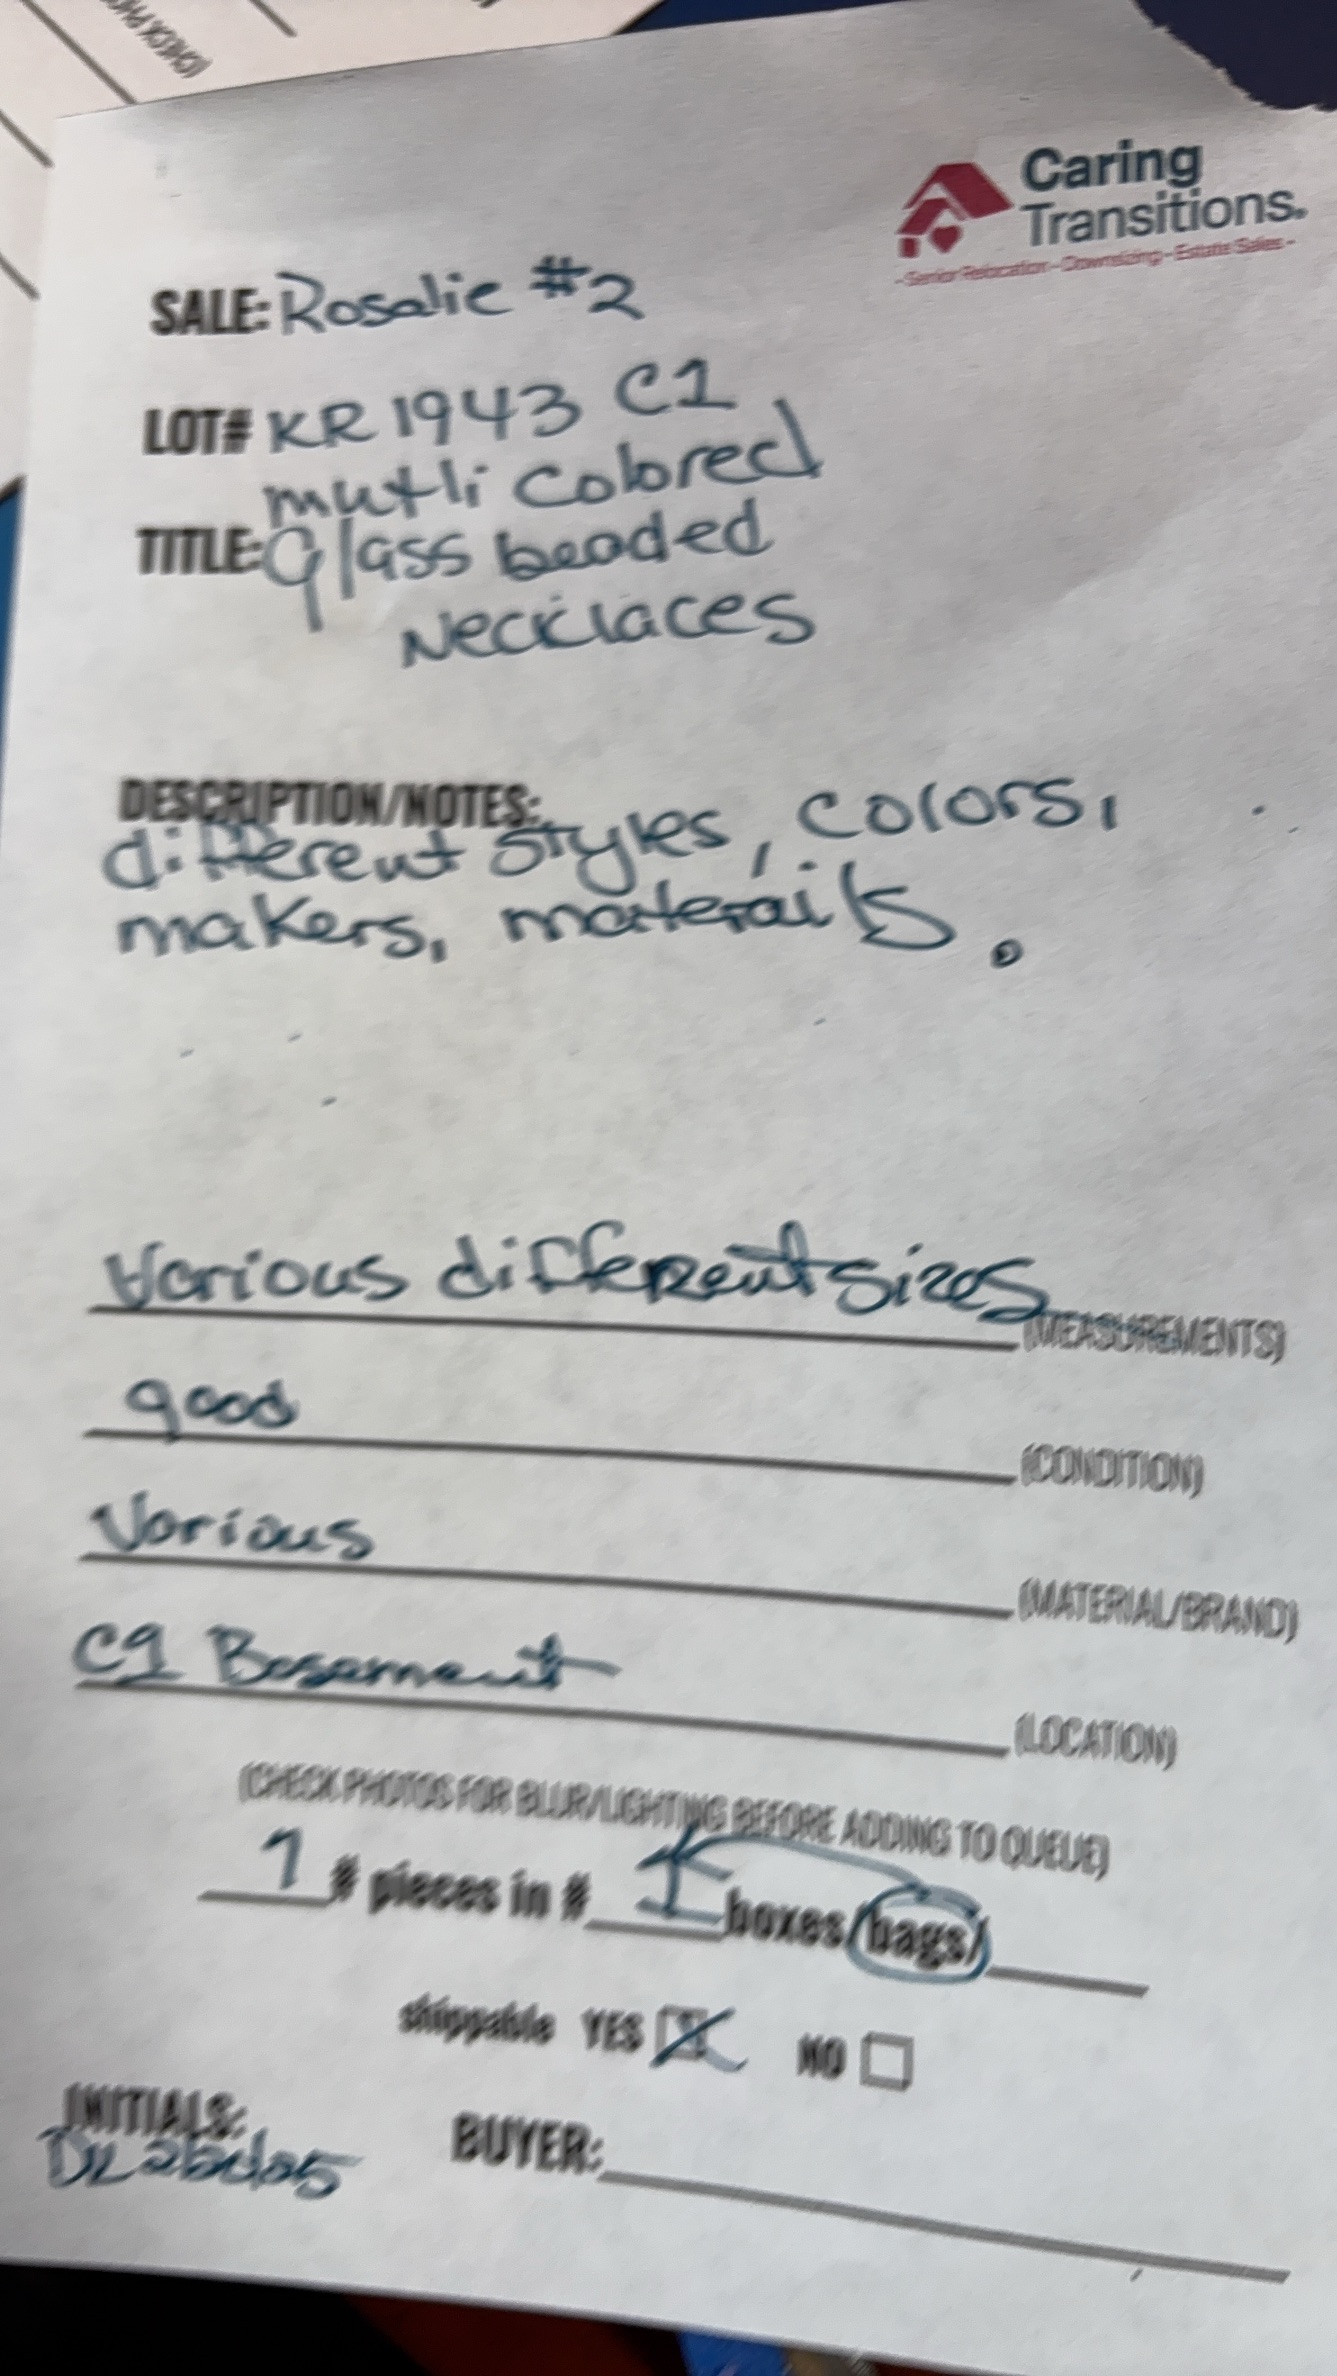 (CHECK PH
Caring
Transitions.
- Senior Relocation - Downsizing - Estate Sales -
SALE: Rosalie #2
LOT# KR1943 C1
mutli colored
TITLE: Glass beaded
Necklaces
DESCRIPTION/NOTES:
different styles, colors,
makers, materails.
Various different sizes (MEASUREMENTS)
good (CONDITION)
Various (MATERIAL/BRAND)
C1 Basement (LOCATION)
(CHECK PHOTOS FOR BLUR/LIGHTING BEFORE ADDING TO QUEUE)
7 # pieces in # 1 boxes/bags/
shippable YES NO
INITIALS: BUYER: